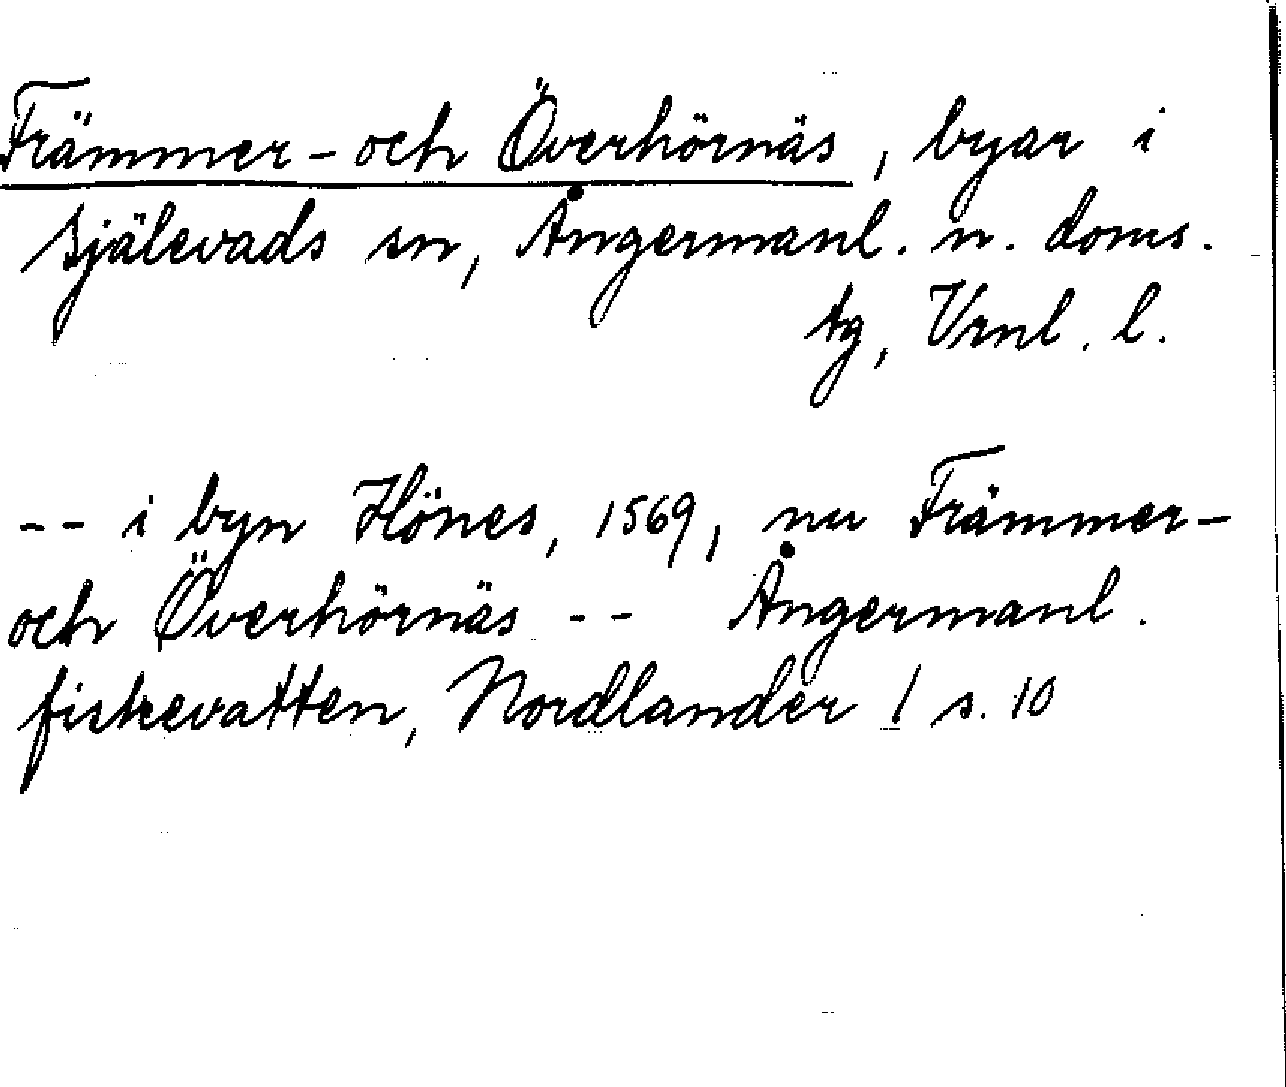 Främmer- och Överhörnäs, byar i
Själevads sn, Ångermanl. n. doms.
tg, Vrnl. l.
-- i byn Hönes, 1569, nu Främmer-
och Överhörnäs -- Ångermanl.
fiskevatten, Nordlander 1 s. 10